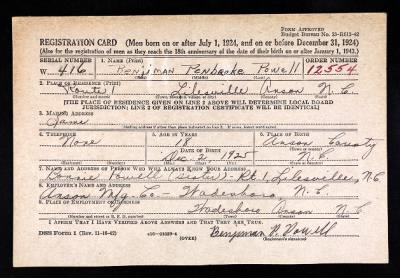 FORM APPROVED
Budget Bureau No. 33-R013-42
REGISTRATION CARD (Men born on or after July 1, 1924, and on or before December 31, 1924)
(Also for the registration of men as they reach the 18th anniversary of the date of their birth on or after January 1, 1943.)
SERIAL NUMBER
1. NAME (Print)
ORDER NUMBER
W 416
Benjiman Penbroke Powell
12554
2. PLACE OF RESIDENCE (Print)
Route 1 Lilesville Anson N.C.
[THE PLACE OF RESIDENCE GIVEN ON LINE 2 ABOVE WILL DETERMINE LOCAL BOARD
JURISDICTION; LINE 2 OF REGISTRATION CERTIFICATE WILL BE IDENTICAL]
3. MAILING ADDRESS
Same
4. TELEPHONE
5. AGE IN YEARS
6. PLACE OF BIRTH
None
18
Anson County
DATE OF BIRTH
Dec 2, 1925
N.C.
7. NAME AND ADDRESS OF PERSON WHO WILL ALWAYS KNOW YOUR ADDRESS
Powell (sister) Rt. 1, Lilesville, N.C.
8. EMPLOYER'S NAME AND ADDRESS
Anson Mfg. Co. Wadesboro N.C.
9. PLACE OF EMPLOYMENT OR BUSINESS
Wadesboro Anson N.C.
I AFFIRM THAT I HAVE VERIFIED ABOVE ANSWERS AND THAT THEY ARE TRUE.
DSS Form 1 (Rev. 11-16-42)
(OVER)
Benjiman P. Powell
(Registrant's signature)